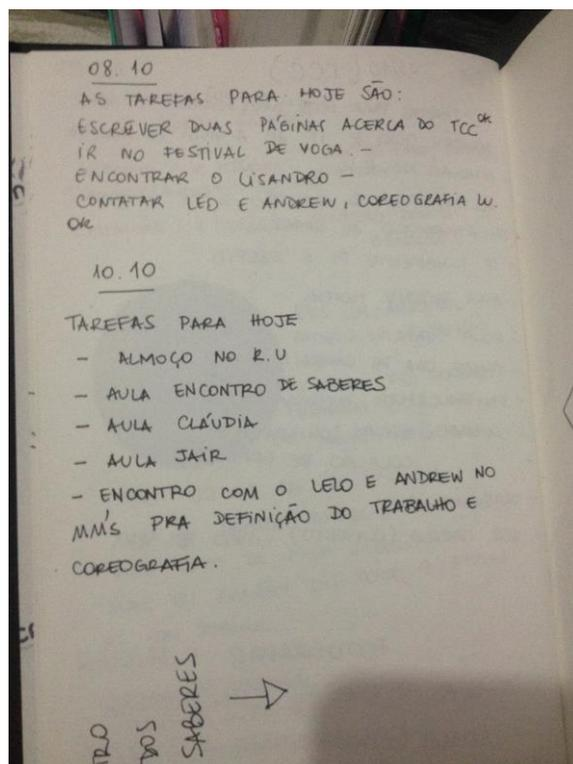 08.10
AS TAREFAS PARA HOJE SÃO:
ESCREVER DUAS PÁGINAS ACERCA DO TCC OK
IR NO FESTIVAL DE YOGA. –
ENCONTRAR O LISANDRO –
CONTATAR LÉO E ANDREW, COREOGRAFIA W.
OK
10.10
TAREFAS PARA HOJE
– ALMOÇO NO R.U
– AULA ENCONTRO DE SABERES
– AULA CLÁUDIA
– AULA JAIR
– ENCONTRO COM O LELO E ANDREW NO
MM'S PRA DEFINIÇÃO DO TRABALHO E
COREOGRAFIA.
TRO
DOS
SABERES